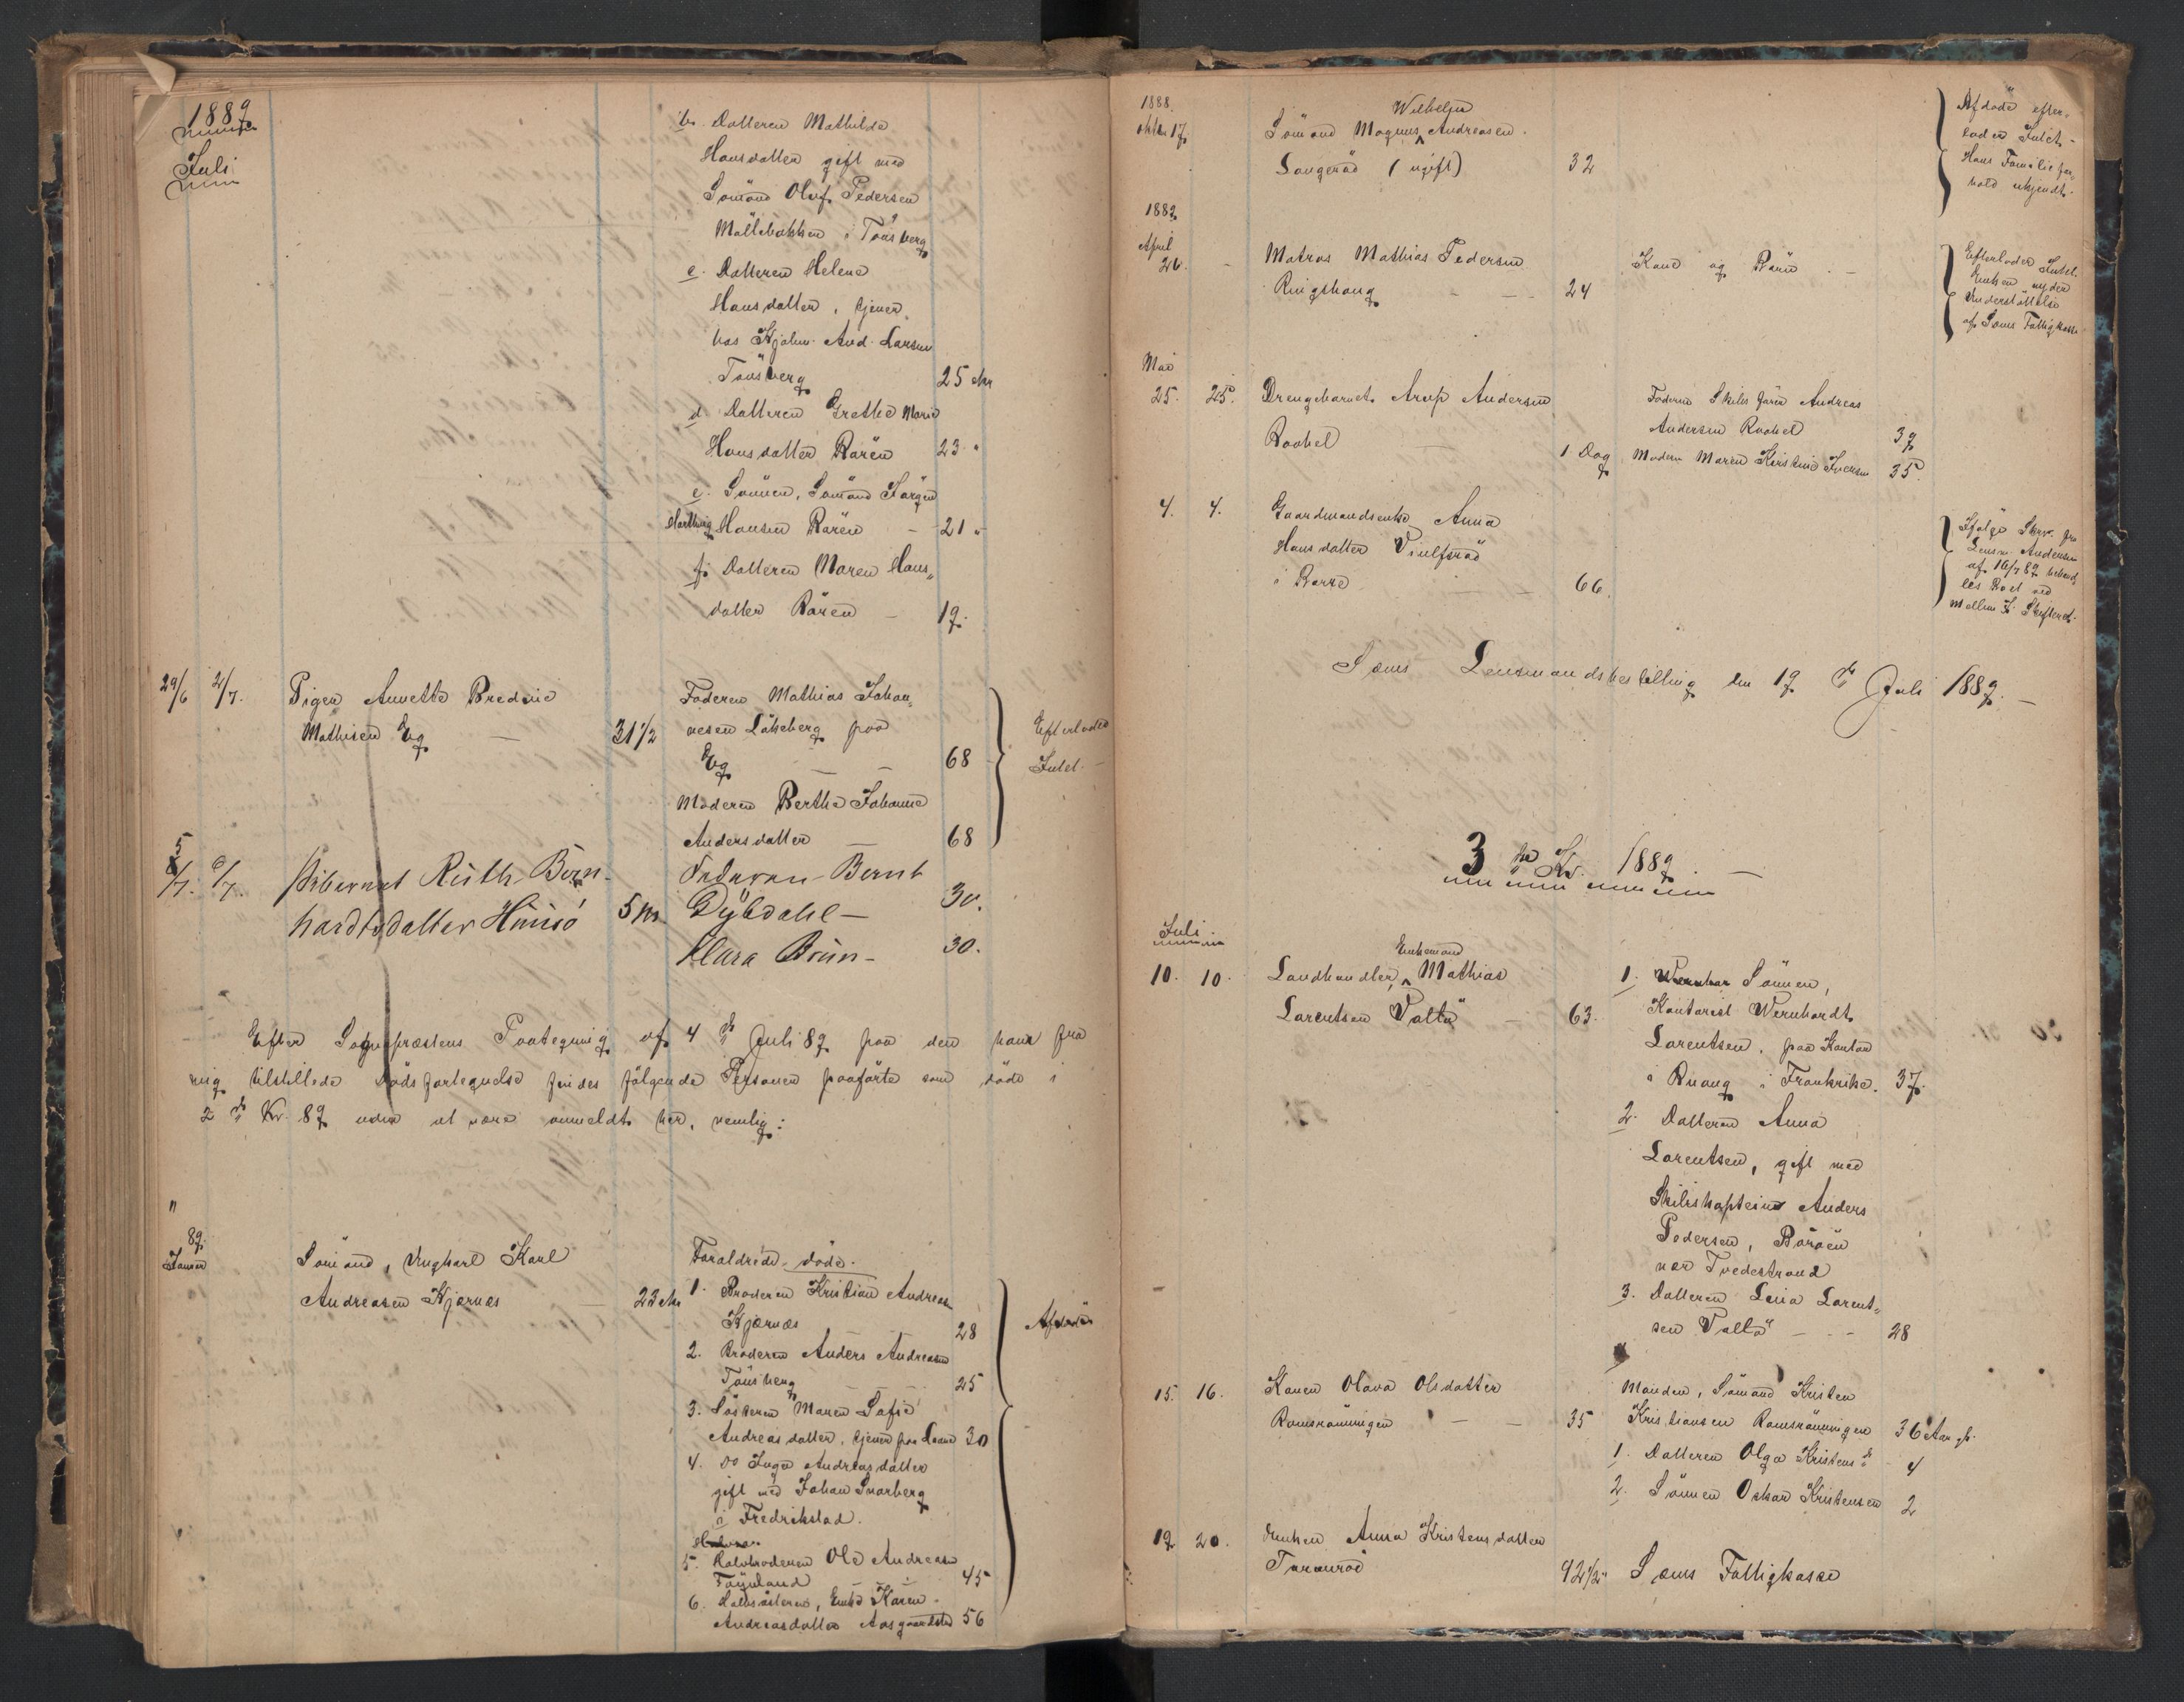 1889
Juli
b. Datteren Mathilde
Hansdatter gift med
Sømand Oluf Pedersen
Møllebakken i Tønsberg
c. Datteren Helene
Hansdatter, tjener
hos Kjøbm. And. Larsen
Tønsberg 25 Aar
d Datteren Grethe Marie
Hansdatter Raren 23 "
e. Sønnen, Sømand Jørgen
Harthvig Hansen Raren - 21 "
f. Datteren Maren Hans„
datter Raren - 19.
29/6 2/7. Pigen Annette Bredine
Mathisen Eg — 31 1/2
Faderen Mathias Johan„
nesen Løkeberg paa
Eg — — 68
Moderen Berthe Johanne
Andersdatter — 68
Efterlader
Intet.
5/7. 6/7. Pibarnet Ruth Bern-
hardtsdatter Husø 5 M
Faderen Bernt
Dybdahl — 30.
Klara Brun - 30.
Efter Sognepræstens Paategning af 4 de Juli 89 paa den ham fra
mig tilstillede Dødsfortegnelse findes følgende Personer paaførte som døde i
2 det Kv. 89 uden at være anmeldt her, nemlig:
"
89.
Januar Sømand, Ungkarl Karl
Andreasen Kjærnes — 23 Aar
Forældrene døde.
1. Broderen Kristian Andreasen
Kjærnæs — — 28
2. Broderen Anders Andreasen
Tønsberg — — 25
3. Søsteren Maren Sofie
Andreasdatter, tjener paa 30
4. Do Inga Andreasdatter
gift med Johan Svarberg
i Fredrikstad.
5. Halvbroderen Ole Andreasen
Føynland — — 45
6. Halvsøsteren, Enke Karen
Andreasdatter Aasgaardstrd 56
1888.
Oktbr 17 Sømand Magnus Wilhelm Andreasen
Langerød (ugift) 32
Afdøde efter„
lader Intet.
Hans Familiefor„
hold ukjendt.
1889
April
26. - Matros Mathias Pedersen
Ringshaug — — 24
Kone og Børn. —
Efterlader Intet.
Enken nyder
Understøttelse
af Sems Fattigkasse
Mai
25. 25. Drengebarnet Arup Andersen
Roobel — 1 Dag
Faderen Skibsfører Andreas
Andersen Roobel 39
Modern Maren Kirstine Iversen 35.
4. 4. Gaardmandsenke Anna
Hansdatter Viulfsrød
i Borre — — 66.
Ifølge Skriv. fra
Lensm. Andersen
af 16/7 89 behand„
les Boet ved
Mellem K. Skifteret.
Sems Lensmandsbestilling den 19 de Juli 1889. —
3 die Kv. 1889. —
Juli.
10. 10. Landhandler, Enkemand Mathias
Larentsen Valløᵉ — 63.
1. Sønnen,
Kontorist Wernhardt
Larentsen, paa Kontor
i Ruang i Frankrike. 37.
2. Datteren Anna
Larentsen, gift med
Skibskaptein Anders
Pedersen, Borøen
nær Tvedestrand
3. Datteren Lena Larent„
sen Vallø — - - 28
15. 16. Konen Olava Olsdatter
Ramsrønningen — — 35
Manden, Sømand Kristen
Kristiansen Ramsrønningen 36 Aar gl.
1. Datteren Olga Kristensd. - 4
2. Sønnen Oskar Kristensen 2
19 20. Enken Anna Kristensdatter
Tuverød 92 1/2 " Sems Fattigkasse